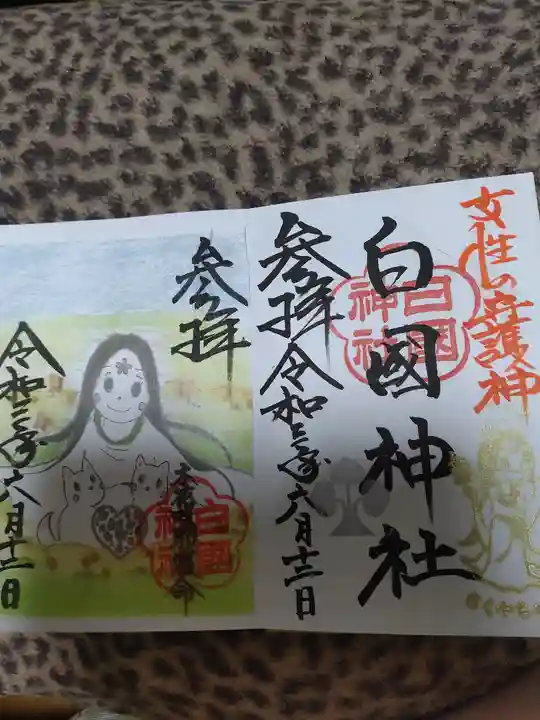 女性の守護神
白國神社
白國
神社
参拝
令和三年六月十二日
参拝
白國
神社
令和三年六月十二日